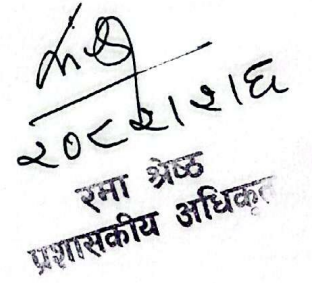 २०८२।२।६
रमा श्रेष्ठ
प्रशासकीय अधिकृत